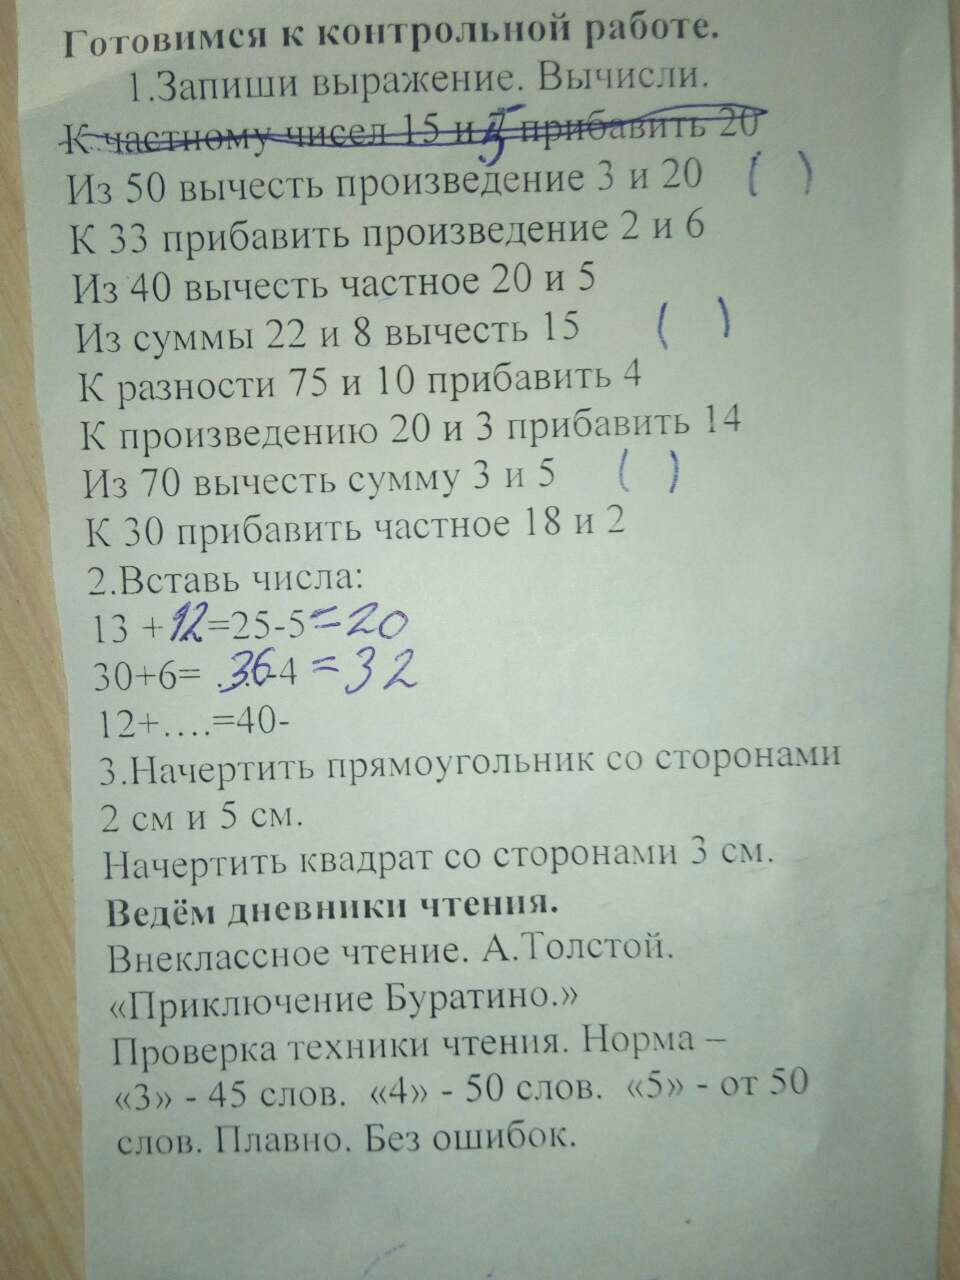 Готовимся к контрольной работе.
1.Запиши выражение. Вычисли.
К частному чисел 15 и 5 прибавить 20
Из 50 вычесть произведение 3 и 20 ( )
К 33 прибавить произведение 2 и 6
Из 40 вычесть частное 20 и 5
Из суммы 22 и 8 вычесть 15 ( )
К разности 75 и 10 прибавить 4
К произведению 20 и 3 прибавить 14
Из 70 вычесть сумму 3 и 5 ( )
К 30 прибавить частное 18 и 2
2.Вставь числа:
13 +12=25-5=20
30+6= .36-4 =32
12+….=40-
3.Начертить прямоугольник со сторонами
2 см и 5 см.
Начертить квадрат со сторонами 3 см.
Ведём дневники чтения.
Внеклассное чтение. А.Толстой.
«Приключение Буратино.»
Проверка техники чтения. Норма –
«3» - 45 слов. «4» - 50 слов. «5» - от 50
слов. Плавно. Без ошибок.